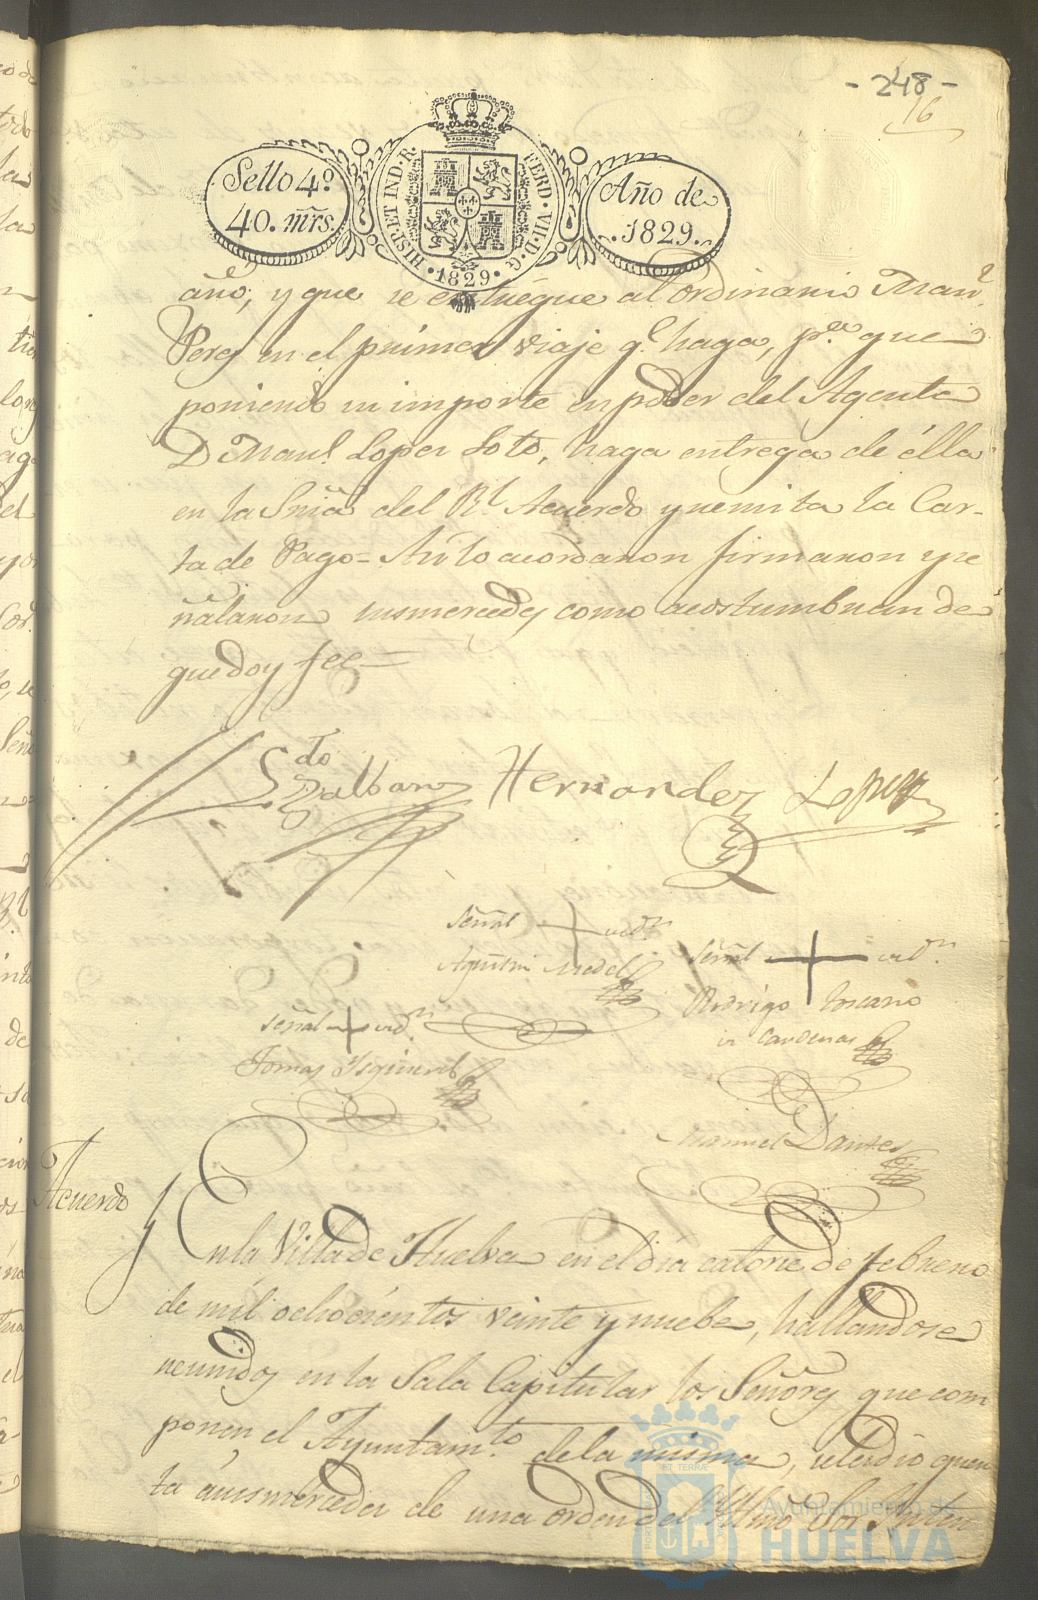 - 248 -
16
Sello 4º
40. mrs.
HISP. ET IND. R.
FERD. VII. D. G.
· 1829 ·
Año de
1829.
año, y que se entregue al ordinario Man.l
Perez en el primer viaje q.e haga, p.a que
poniendo su importe en poder del Agente
D Man.l Lopez Soto, haga entrega de élla
en la Sria del R.l Acuerdo y remita la Car-
ta de Pago = Asi lo acordaron firmaron y se
ñalaron sus mercedes como acostumbran de
que doy fee =
L.do Zalbanz Hernandez Lopez
Señal + de
Agustin Medel
Señal + de
Rodrigo Toscano
Cardenas
Señal + de
Tomas Ysquierdo
Manuel Dantes
Acuerdo
En la Villa de Huelva en el dia catorce de febrero
de mil ochocientos veinte y nuebe, hallandose
reunidos en la Sala Capitular los Señores que com
ponen el Ayuntam.to de la misma, se les dió quen
ta á sus mercedes de una orden del Yllmo Sor. Inten
Ayuntamiento de
HUELVA